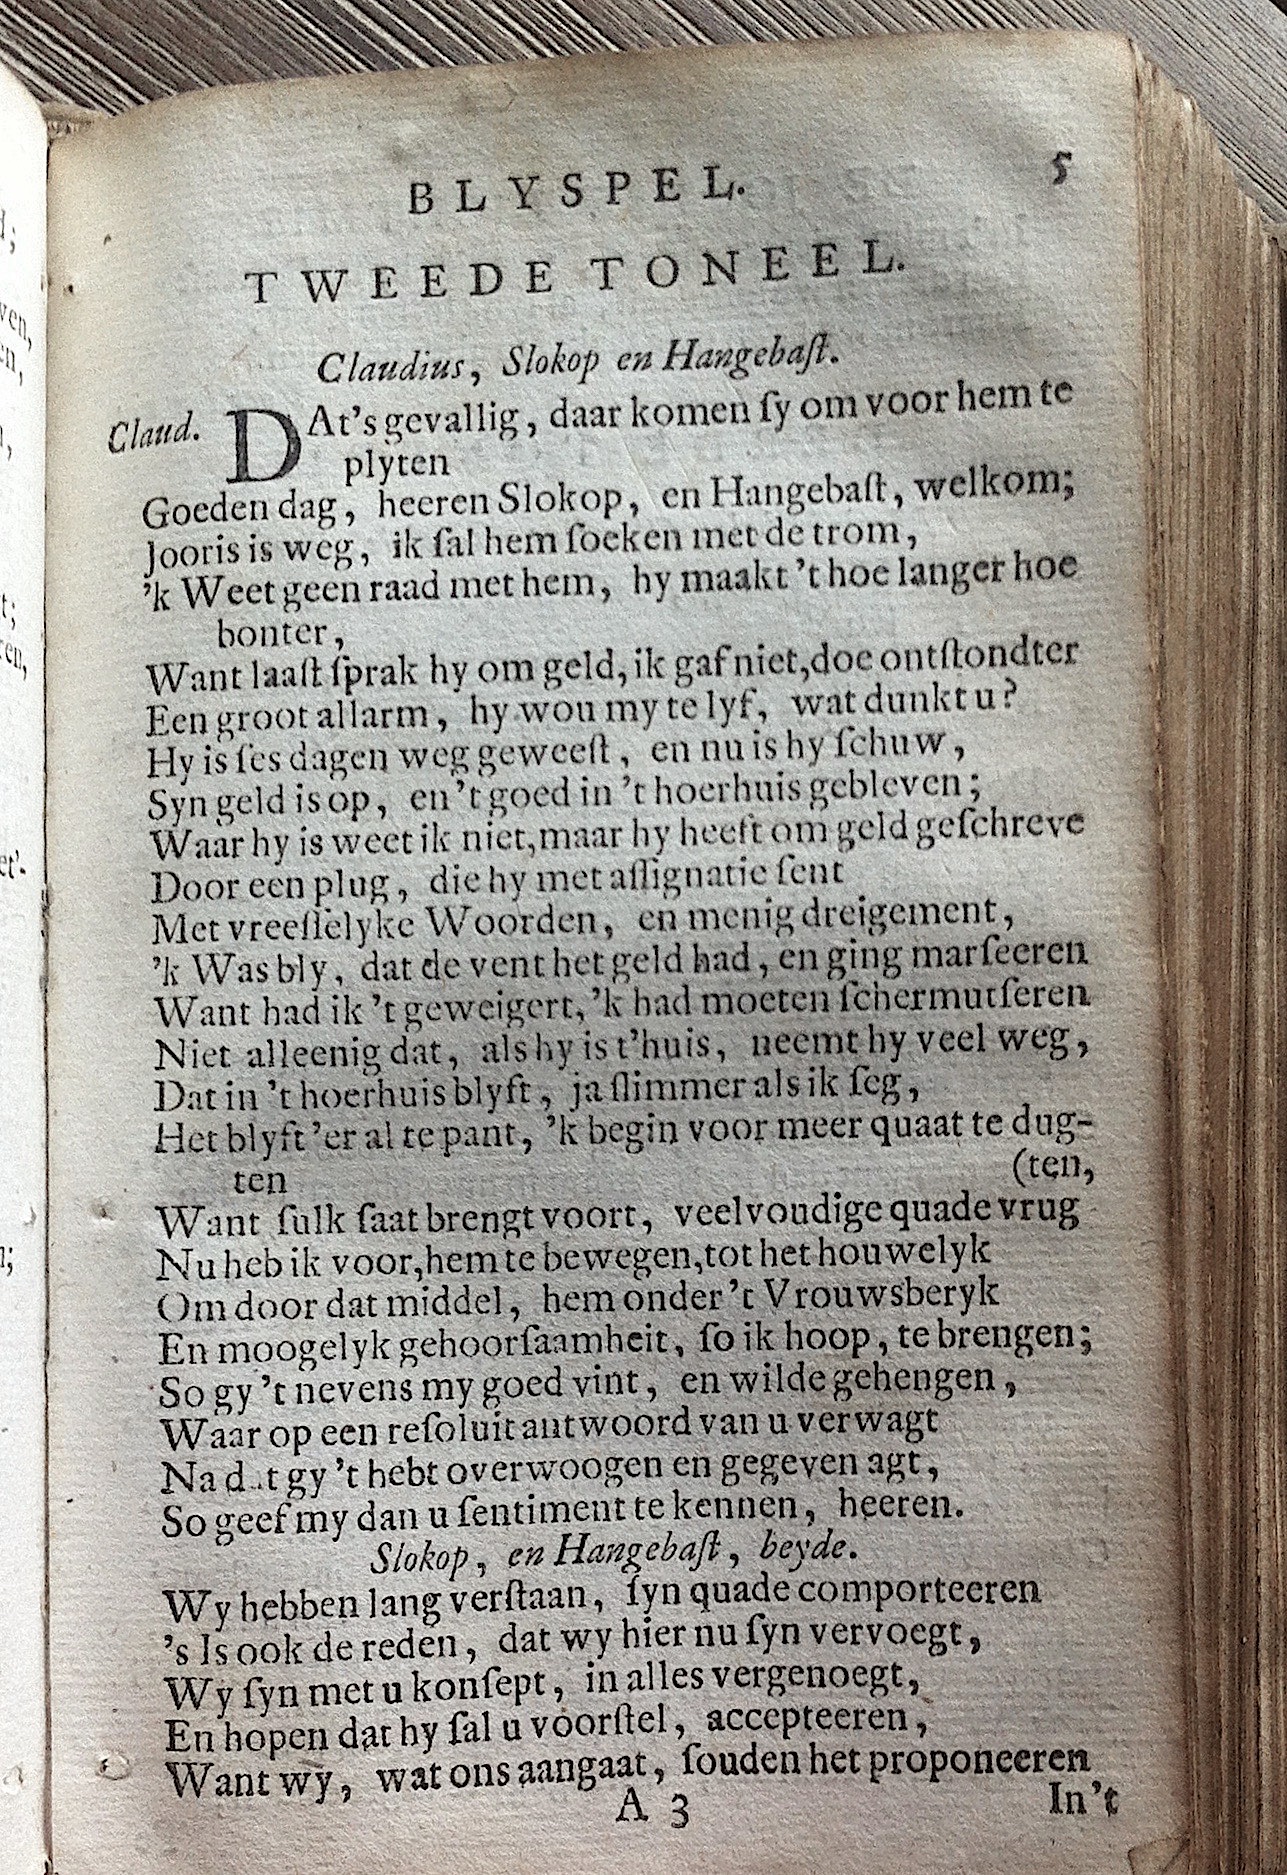 BLYSPEL. 5
TWEEDE TONEEL.
Claudius, Slokop en Hangebaſt.
Claud. DAt's gevallig, daar komen ſy om voor hem te
plyten
Goeden dag, heeren Slokop, en Hangebaſt, welkom;
Jooris is weg, ik ſal hem ſoeken met de trom,
'k Weet geen raad met hem, hy maakt 't hoe langer hoe
bonter,
Want laaſt ſprak hy om geld, ik gaf niet, doe ontſtondter
Een groot allarm, hy wou my te lyf, wat dunkt u?
Hy is ſes dagen weg geweeſt, en nu is hy ſchuw,
Syn geld is op, en 't goed in 't hoerhuis gebleven;
Waar hy is weet ik niet, maar hy heeft om geld geſchreve
Door een plug, die hy met aſſignatie ſent
Met vreeſſelyke Woorden, en menig dreigement,
'k Was bly, dat de vent het geld had, en ging marſeeren
Want had ik 't geweigert, 'k had moeten ſchermutſeren
Niet alleenig dat, als hy is t'huis, neemt hy veel weg,
Dat in 't hoerhuis blyft, ja ſlimmer als ik ſeg,
Het blyft 'er al te pant, 'k begin voor meer quaat te dug-
ten (ten,
Want ſulk ſaat brengt voort, veelvoudige quade vrug
Nu heb ik voor, hem te bewegen, tot het houwelyk
Om door dat middel, hem onder 't Vrouwsberyk
En moogelyk gehoorſaamheit, ſo ik hoop, te brengen;
So gy 't nevens my goed vint, en wilde gehengen,
Waar op een reſoluit antwoord van u verwagt
Na d..t gy 't hebt overwoogen en gegeven agt,
So geef my dan u ſentiment te kennen, heeren.
Slokop, en Hangebaſt, beyde.
Wy hebben lang verſtaan, ſyn quade comporteeren
's Is ook de reden, dat wy hier nu ſyn vervoegt,
Wy ſyn met u konſept, in alles vergenoegt,
En hopen dat hy ſal u voorſtel, accepteeren,
Want wy, wat ons aangaat, ſouden het proponeeren
A 3 In't